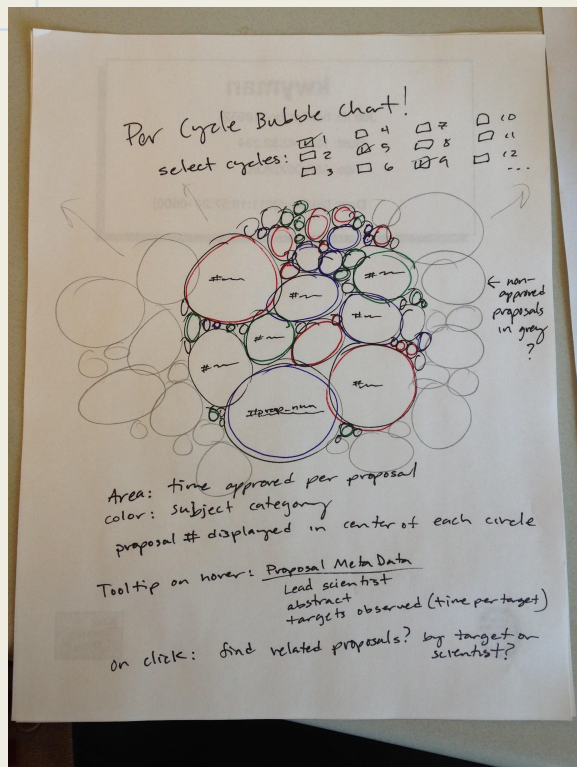 kwyman
Per Cycle Bubble Chart!
select cycles: 1 4 7 10
2 5 8 11
3 6 9 12
...
#
#
#
#
#
#
#
#prop_num
← non-
approved
proposals
in grey
?
Area: time approved per proposal
color: subject category
proposal # displayed in center of each circle
Tooltip on hover: Proposal MetaData
Lead scientist
abstract
targets observed (time per target)
on click: find related proposals? by target or
scientist?